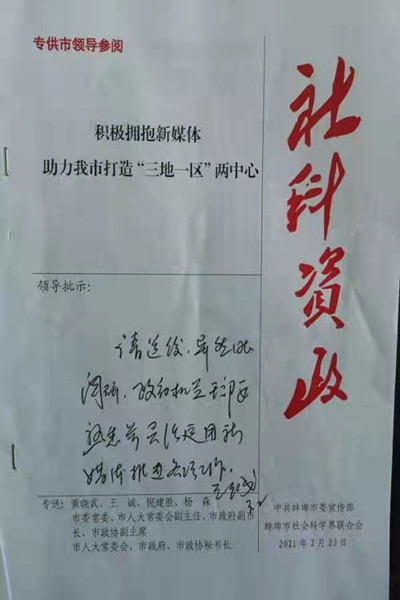 专供市领导参阅
社科资政
积极拥抱新媒体
助力我市打造“三地一区”两中心
领导批示：
媒体推进各项工作。
专送：黄晓武、王 诚、倪建胜、杨 森
市委常委、市人大常委会副主任、市政府副市
长、市政协副主席
市人大常委会、市政府、市政协秘书长
中共蚌埠市委宣传部
蚌埠市社会科学界联合会
2021年2月23日